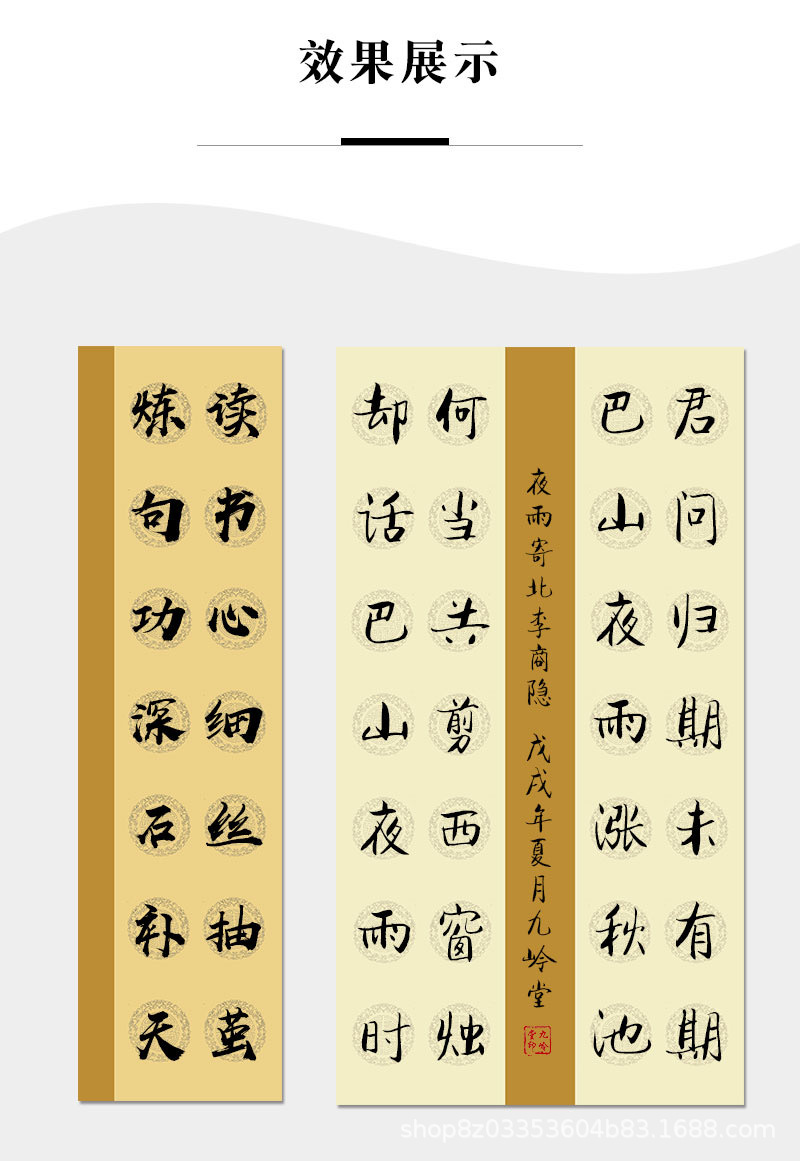 效果展示
读书心细丝抽茧
炼句功深石补天
君问归期未有期
巴山夜雨涨秋池
夜雨寄北李商隐 戊戌年夏月九岭堂
九岭堂印
何当共剪西窗烛
却话巴山夜雨时
shop8z03353604b83.1688.com